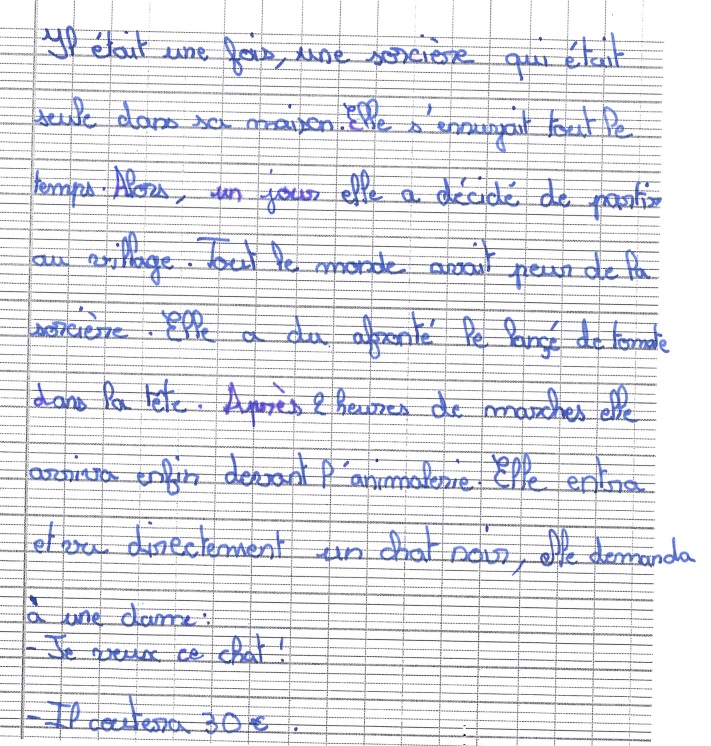 Il était une fois, une sorcière qui était
seule dans sa maison. Elle s'ennuyait tout le
temps. Alors, un jour elle a décidé de partir
au village. Tout le monde avait peur de la
sorcière. Elle a du afronté le langé de tomate
dans la tête. Après 2 heures de marches elle
arriva enfin devant l'animalerie. Elle entra
et vu directement un chat noir, elle demanda
à une dame :
- Je veux ce chat !
- Il coutera 30 €.